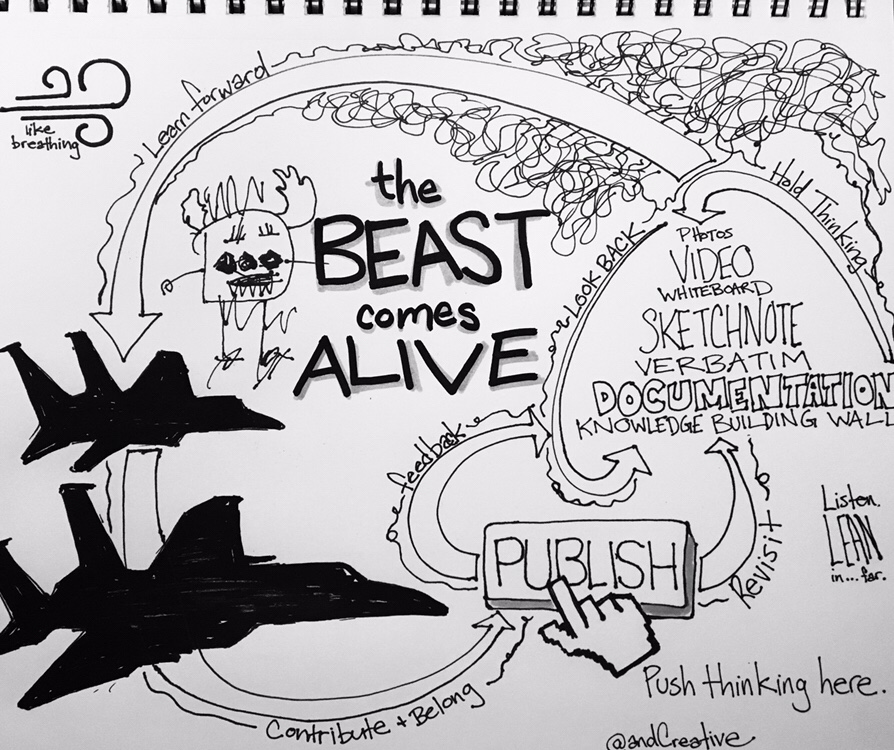 like
breathing
Learn forward
the
BEAST
comes
ALIVE
LOOK BACK
Hold Thinking
PHOTOS
VIDEO
WHITEBOARD
SKETCHNOTE
VERBATIM
DOCUMENTATION
KNOWLEDGE BUILDING WALL
feedback
PUBLISH
Revisit
Listen.
LEAN
in... far.
Contribute + Belong
Push thinking here.
@andCreative